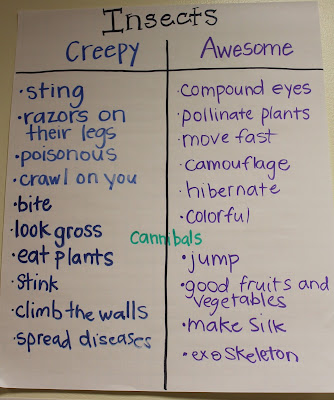 Insects
Creepy
· sting
· razors on
their legs
· poisonous
· crawl on you
· bite
· look gross
· eat plants
· stink
· climb the walls
· spread diseases
cannibals
Awesome
· compound eyes
· pollinate plants
· move fast
· camouflage
· hibernate
· colorful
· jump
· good fruits and
vegetables
· make silk
· exoskeleton